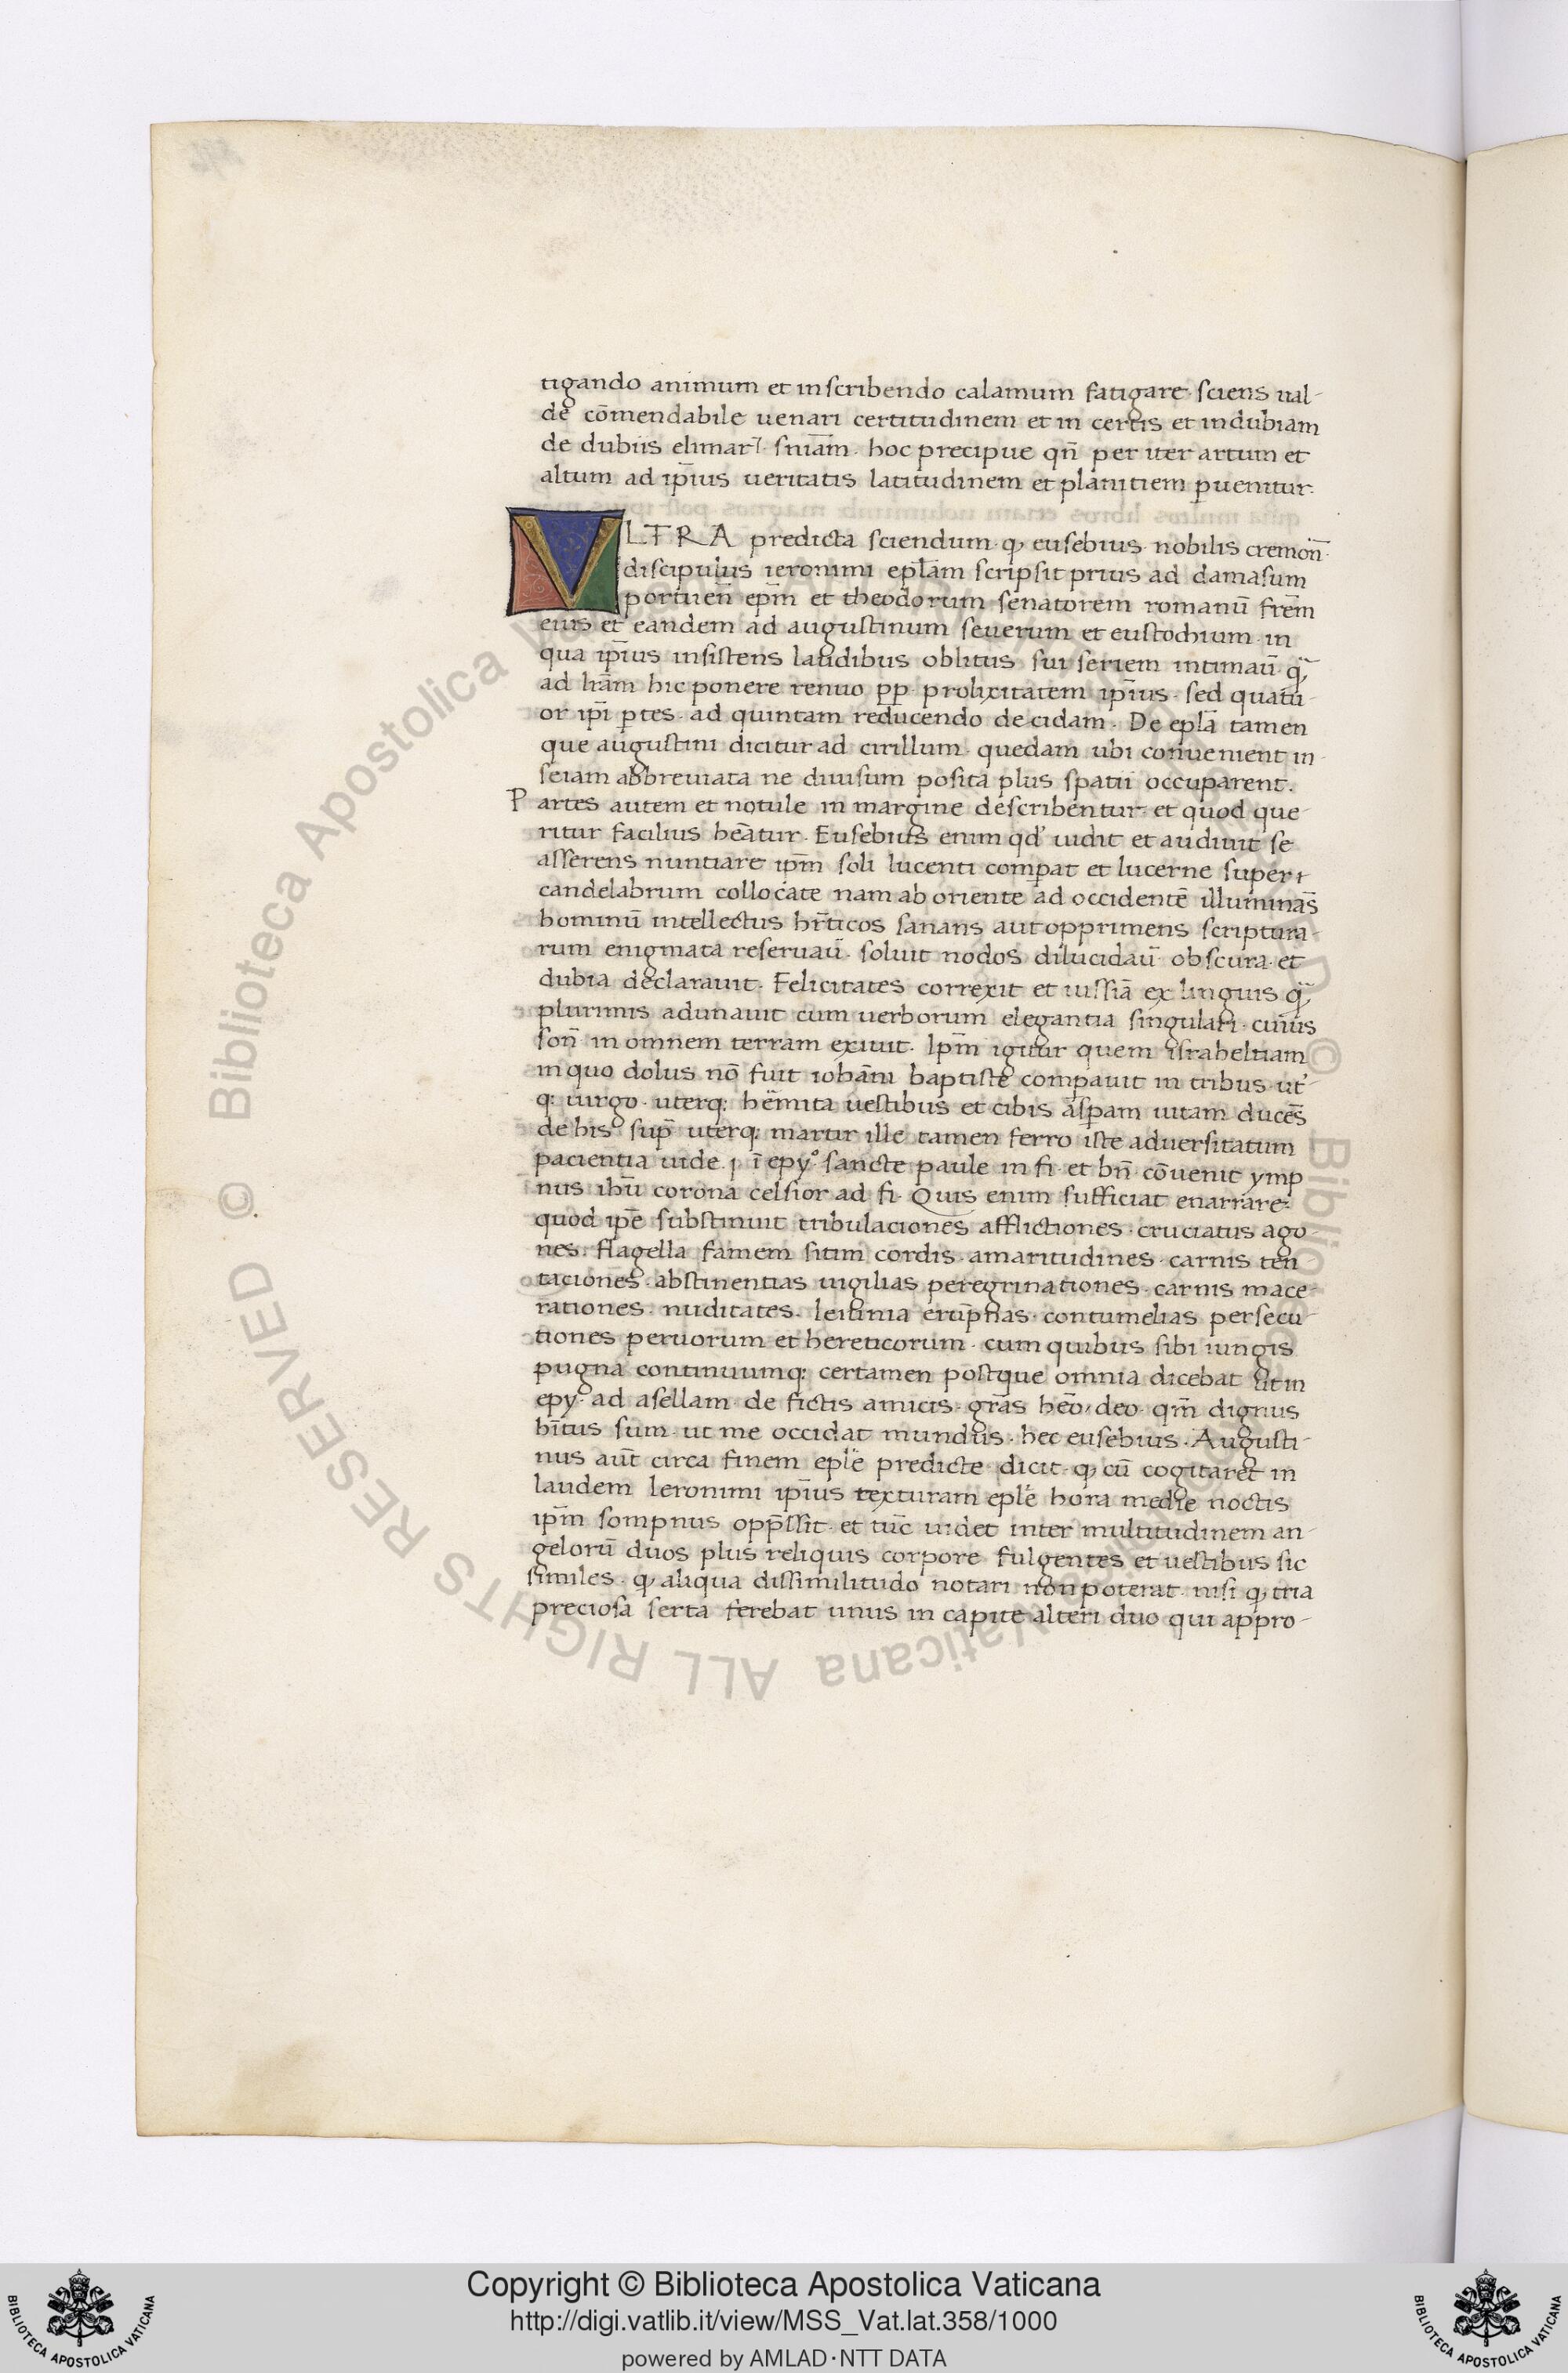 tigando animum et in scribendo calamum fatigare· sciens ual-
de cōmendabile uenari certitudinem et in certis et indubiam
de dubiis elimar̄· sn̄iam· hoc precipue qn̄ per iter artum et
altum ad ip̄ius ueritatis latitudinem et planitiem ꝑuenitur·
VLTRA predicta sciendum· ꝙ eusebius· nobilis cremoñ·
discipulus ieronimi epl̄am scripsit prius ad damasum
portueñ ep̄m et theodorum senatorem romanū fr̄em
eius et eandem ad augustinum seuerum et eustochium· in
qua ip̄ius insistens laudibus oblitus sui seriem intimaū·
ad lr̄am hic ponere renuo pp̱· prolixitatem ip̄ius· sed quatu-
or ip̄i ꝑtes· ad quintam reducendo decidam· De epl̄a tamen
que augustini dicitur ad cirillum· quedam ubi conuenient in-
seram abbreuiata ne diuisum posita plus spatii occuparent·
Partes autem et notule in margine describentur· et quod que-
ritur facilius heātur· Eusebius enim qd̓ uidit et audiuit se
asserens nuntiare ip̄m soli lucenti comꝑat et lucerne super
candelabrum collocate nam ab oriente ad occidentē illuminās
hominū intellectus hr̄ticos sanans aut opprimens scriptura-
rum enigmata reseruaū· soluit nodos dilucidaū obscura· et
dubia declarauit· Felicitates correxit et iussiā ex linguis
plurimis adunauit cum uerborum elegantia singulari· cuius
soñ in omnem terram exiuit· Ip̄m igitur quem israheltiam
in quo dolus nō fuit iohāni baptiste compauit in tribus·
q: uirgo· uterq: hēmita uestibus et cibis asꝑam uitam ducēs
de his sup̄ uterq: martir ille tamen ferro iste aduersitatum
pacientia uide· j ī epy° sancte paule in fi· et bn̄ cōuenit ymp
nus ihū corona celsior ad fi· Quis enim sufficiat enarrare·
quod ip̄e substinuit tribulaciones afflictiones· cruciatus ago-
nes· flagella famem sitim cordis· amaritudines· carnis ten
taciones· abstinentias uigilias peregrinationes· carnis mace-
rationes· nuditates· leiunia erūpnas· contumelias persecu-
tiones peruorum et hereticorum· cum quibus sibi iungis
pugna continuumq: certamen postque omnia dicebat ut in
epy· ad asellam de fictis amicis· grās heō· deo· qm̄ dignus
hītus sum· ut me occidat mundus· hec eusebius· Augusti-
nus aūt circa finem epl̄e predicte dicit· ꝙ cū cogitaret in
laudem Ieronimi ip̄ius texturam epl̄e hora medie noctis
ip̄m sompnus opp̄ssit· et tūc uidet inter multitudinem an-
gelorū duos plus reliquis corpore fulgentes et uestibus sic
similes· ꝙ aliqua dissimilitudo notari non poterat· nisi ꝙ tria
preciosa serta ferebat unus in capite alteri duo qui appro-
© Biblioteca Apostolica Vaticana ALL RIGHTS RESERVED
Copyright © Biblioteca Apostolica Vaticana
http://digi.vatlib.it/view/MSS_Vat.lat.358/1000
powered by AMLAD·NTT DATA
BIBLIOTECA APOSTOLICA VATICANA
BIBLIOTECA APOSTOLICA VATICANA